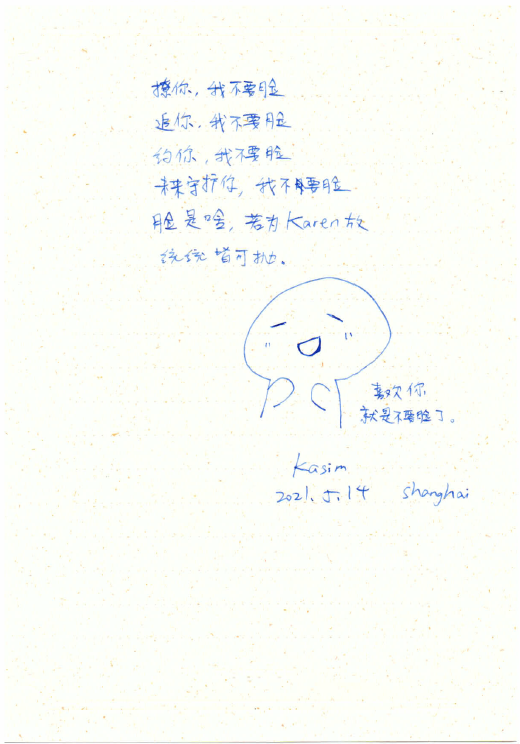 撩你，我不要脸
追你，我不要脸
约你，我不要脸
未来守护你，我不要脸
脸是啥，若为Karen故
统统皆可抛。
喜欢你
就是不要脸了。
Kasim
2021.5.14 shanghai